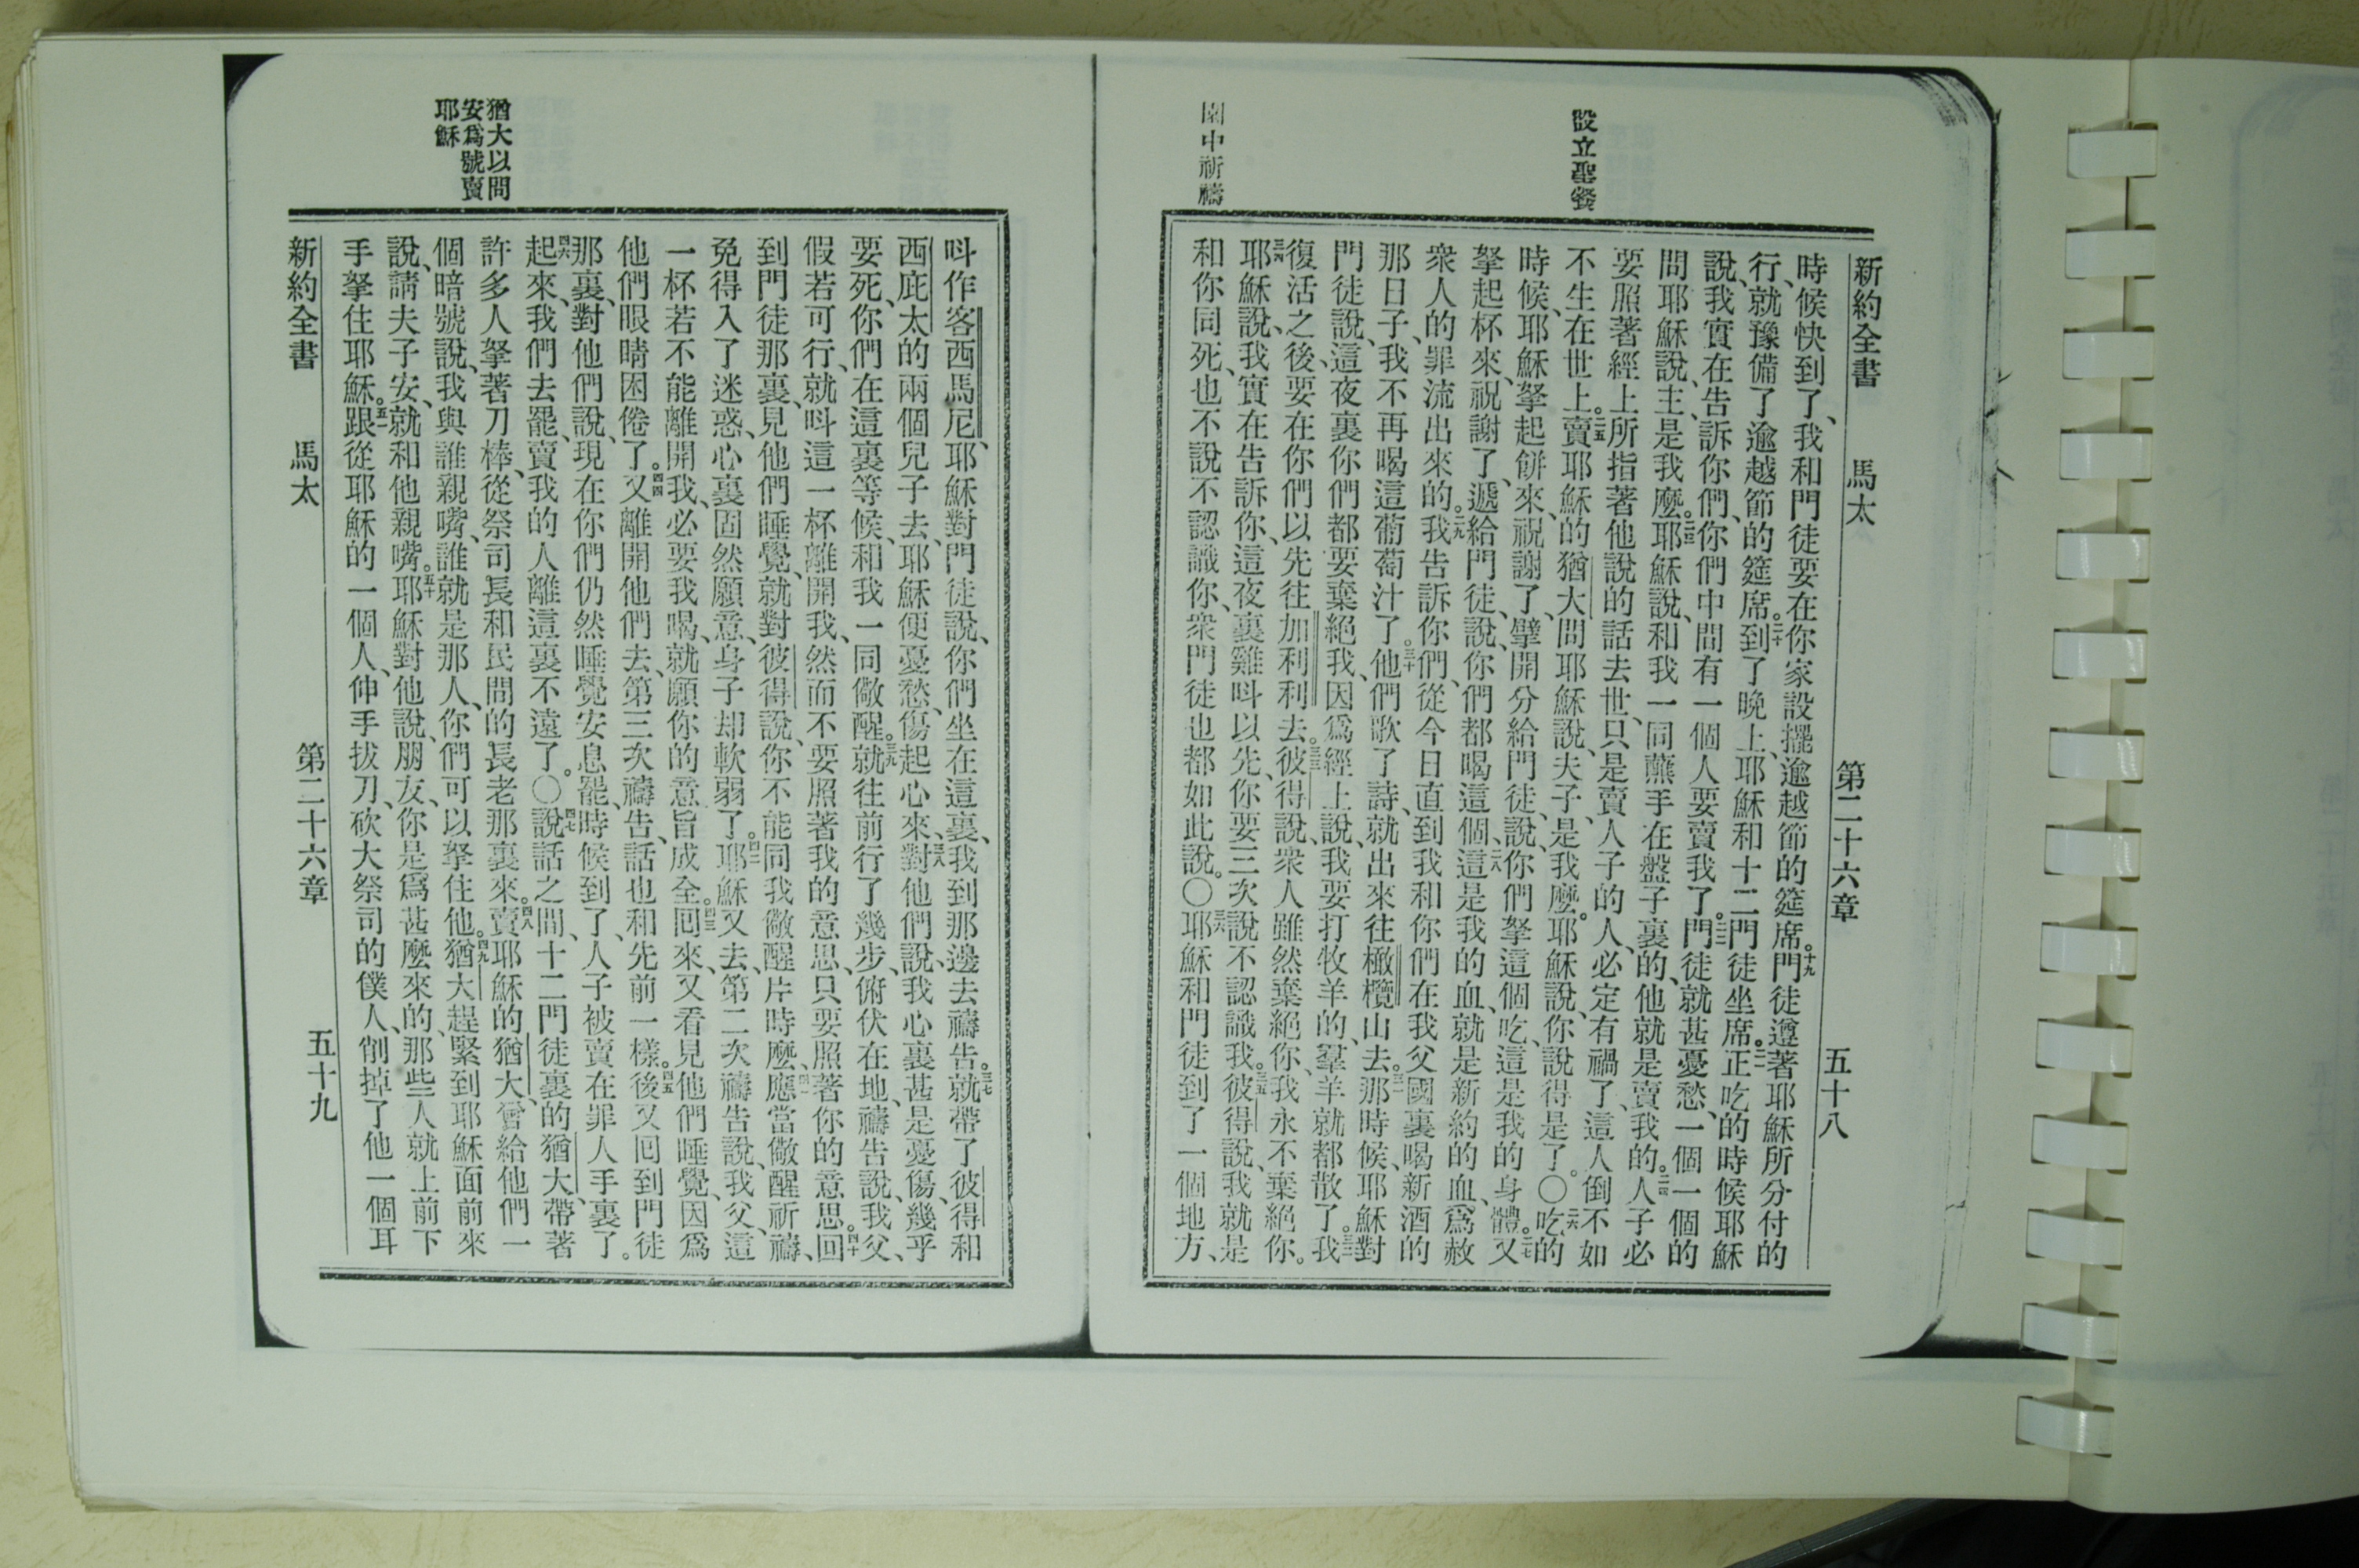 新約全書 馬太 第二十六章 五十八
設立聖餐
園中祈禱
時候快到了、我和門徒要在你家設擺逾越節的筵席。十九門徒遵著耶穌所分付的
行、就豫備了逾越節的筵席。二十到了晚上、耶穌和十二門徒坐席。二一正吃的時候耶穌
說、我實在告訴你們、你們中間有一個人要賣我了。二二門徒就甚憂愁、一個一個的
問耶穌說、主、是我麼。二三耶穌說、和我一同蘸手在盤子裏的、他就是賣我的。二四人子必
要照著經上所指著他說的話去世、只是賣人子的人、必定有禍了、這人倒不如
不生在世上。二五賣耶穌的猶大問耶穌說、夫子、是我麼。耶穌說、你說得是了。〇二六吃的
時候、耶穌拏起餅來、祝謝了、擘開分給門徒、說、你們拏這個吃、這是我的身體。二七又
拏起杯來、祝謝了、遞給門徒、說、你們都喝這個、二八這是我的血、就是新約的血、爲赦
衆人的罪流出來的。二九我告訴你們、從今日直到我和你們在我父國裏喝新酒的
那日子、我不再喝這葡萄汁了。三十他們歌了詩、就出來往橄欖山去。三一那時候、耶穌對
門徒說、這夜裏你們都要棄絕我、因爲經上說、我要打牧羊的、羣羊就都散了。三二我
復活之後、要在你們以先往加利利去。三三彼得說、衆人雖然棄絕你、我永不棄絕你。
三四耶穌說、我實在告訴你、這夜裏雞呌以先、你要三次說不認識我。三五彼得說、我就是
和你同死、也不說不認識你、衆門徒也都如此說。〇三六耶穌和門徒到了一個地方、
呌作客西馬尼、耶穌對門徒說、你們坐在這裏、我到那邊去禱告。三七就帶了彼得和
西庇太的兩個兒子去、耶穌便憂愁、傷起心來、三八對他們說、我心裏甚是憂傷、幾乎
要死、你們在這裏等候、和我一同儆醒。三九就往前行了幾步、俯伏在地、禱告說、我父、
假若可行、就呌這一杯離開我、然而不要照著我的意思、只要照著你的意思。四十回
到門徒那裏、見他們睡覺、就對彼得說、你不能同我儆醒片時麼、四一應當儆醒祈禱、
免得入了迷惑、心裏固然願意、身子却軟弱了。四二耶穌又去、第二次禱告說、我父、這
一杯若不能離開我、必要我喝、就願你的意旨成全。四三回來、又看見他們睡覺、因爲
他們眼睛困倦了。四四又離開他們去、第三次禱告、話也和先前一樣。四五後又回到門徒
那裏、對他們說、現在你們仍然睡覺安息罷、時候到了、人子被賣在罪人手裏了。
四六起來、我們去罷、賣我的人離這裏不遠了。〇四七說話之間、十二門徒裏的猶大、帶著
許多人拏著刀棒、從祭司長和民間的長老那裏來。四八賣耶穌的猶大、曾給他們一
個暗號說、我與誰親嘴、誰就是那人、你們可以拏住他。四九猶大趕緊到耶穌面前來
說、請夫子安、就和他親嘴。五十耶穌對他說、朋友、你是爲甚麼來的、那些人就上前下
手拏住耶穌。五一跟從耶穌的一個人、伸手拔刀、砍大祭司的僕人、削掉了他一個耳
猶大以問
安爲號賣
耶穌
新約全書 馬太 第二十六章 五十九